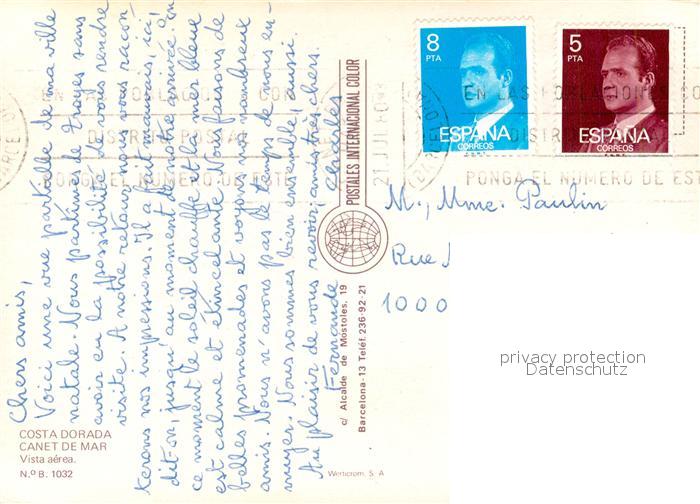 Chers amis,
Voici une vue partielle de ma ville
natale. Nous partîmes de Troyes sans
avoir eu la possibilité de vous rendre
visite. A notre retour, nous vous racon-
terons nos impressions. Il a fait mauvais, ici,
dit-on, jusqu'au moment de notre arrivée. En
ce moment le soleil chauffe et la mer bleue
est calme et étincelante. Nous faisons de
belles promenades et voyons nos nombreux
amis. Nous n'avons pas le temps de nous en-
nuyer. Nous sommes bien ensemble, aussi.
Au plaisir de vous revoir, amis très chers.
Fernande
COSTA DORADA
CANET DE MAR
Vista aérea.
N.º B. 1032
POSTALES INTERNACIONAL COLOR
c/ Alcalde de Móstoles, 19
Barcelona-13 Teléf. 236-92-21
Werticrom, S. A
8
PTA
ESPAÑA
CORREOS
5
PTA
ESPAÑA
CORREOS
EN LAS POBLACIONES CON
DISTRITO POSTAL
PONGA EL NUMERO DE ESTE
M., Mme. Paulin
Rue
1000
privacy protection
Datenschutz